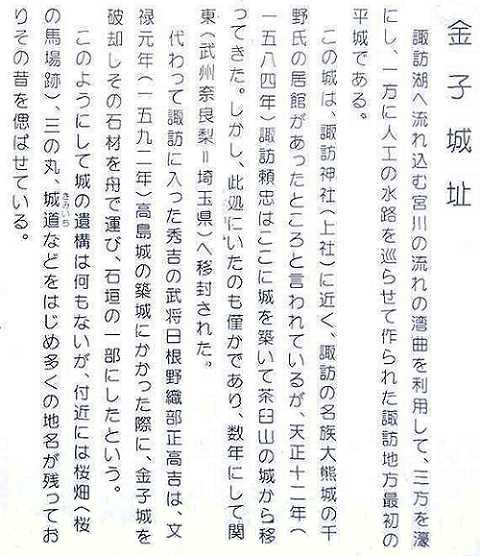 金子城址
諏訪湖へ流れ込む宮川の流れの湾曲を利用して、三方を濠
にし、一方に人工の水路を巡らせて作られた諏訪地方最初の
平城である。
この城は、諏訪神社（上社）に近く、諏訪の名族大熊城の千
野氏の居館があったところと言われているが、天正十二年（
一五八四年）諏訪頼忠はここに城を築いて茶臼山の城から移
ってきた。しかし、此処にいたのも僅かであり、数年にして関
東（武州奈良梨＝埼玉県）へ移封された。
代わって諏訪に入った秀吉の武将日根野織部正高吉は、文
禄元年（一五九二年）高島城の築城にかかった際に、金子城を
破却しその石材を舟で運び、石垣の一部にしたという。
このようにして城の遺構は何もないが、付近には桜畑（桜
の馬場跡）、三の丸、城道（きみいち）などをはじめ多くの地名が残ってお
りその昔を偲ばせている。